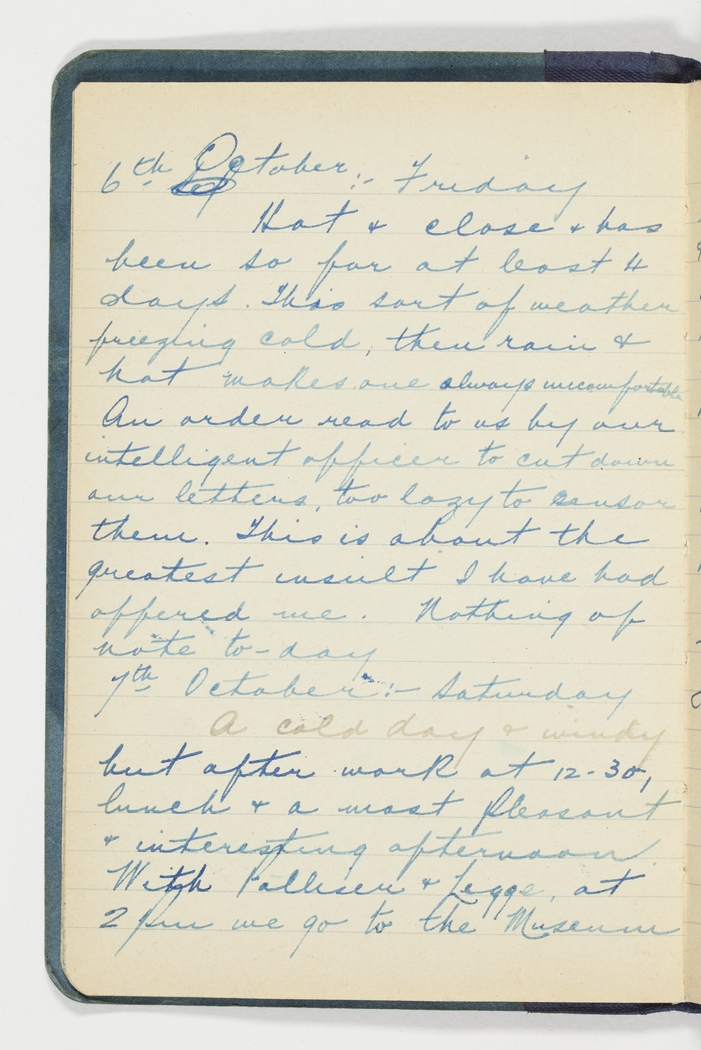 6th October :- Friday
Hot & close & has
been so for at least 4
days. This sort of weather
freezing cold, then rain &
hot makes one always uncomfortable
An order read to us by our
intelligent officer to cut down
our letters, too lazy to sensor
them. This is about the
greatest insult I have had
offered me. Nothing of
note to-day
7th October :- Saturday
A cold day & windy
but after work at 12-30,
lunch & a most pleasant
& interesting afternoon.
With Palliser & Legge, at
2 pm we go to the Museum